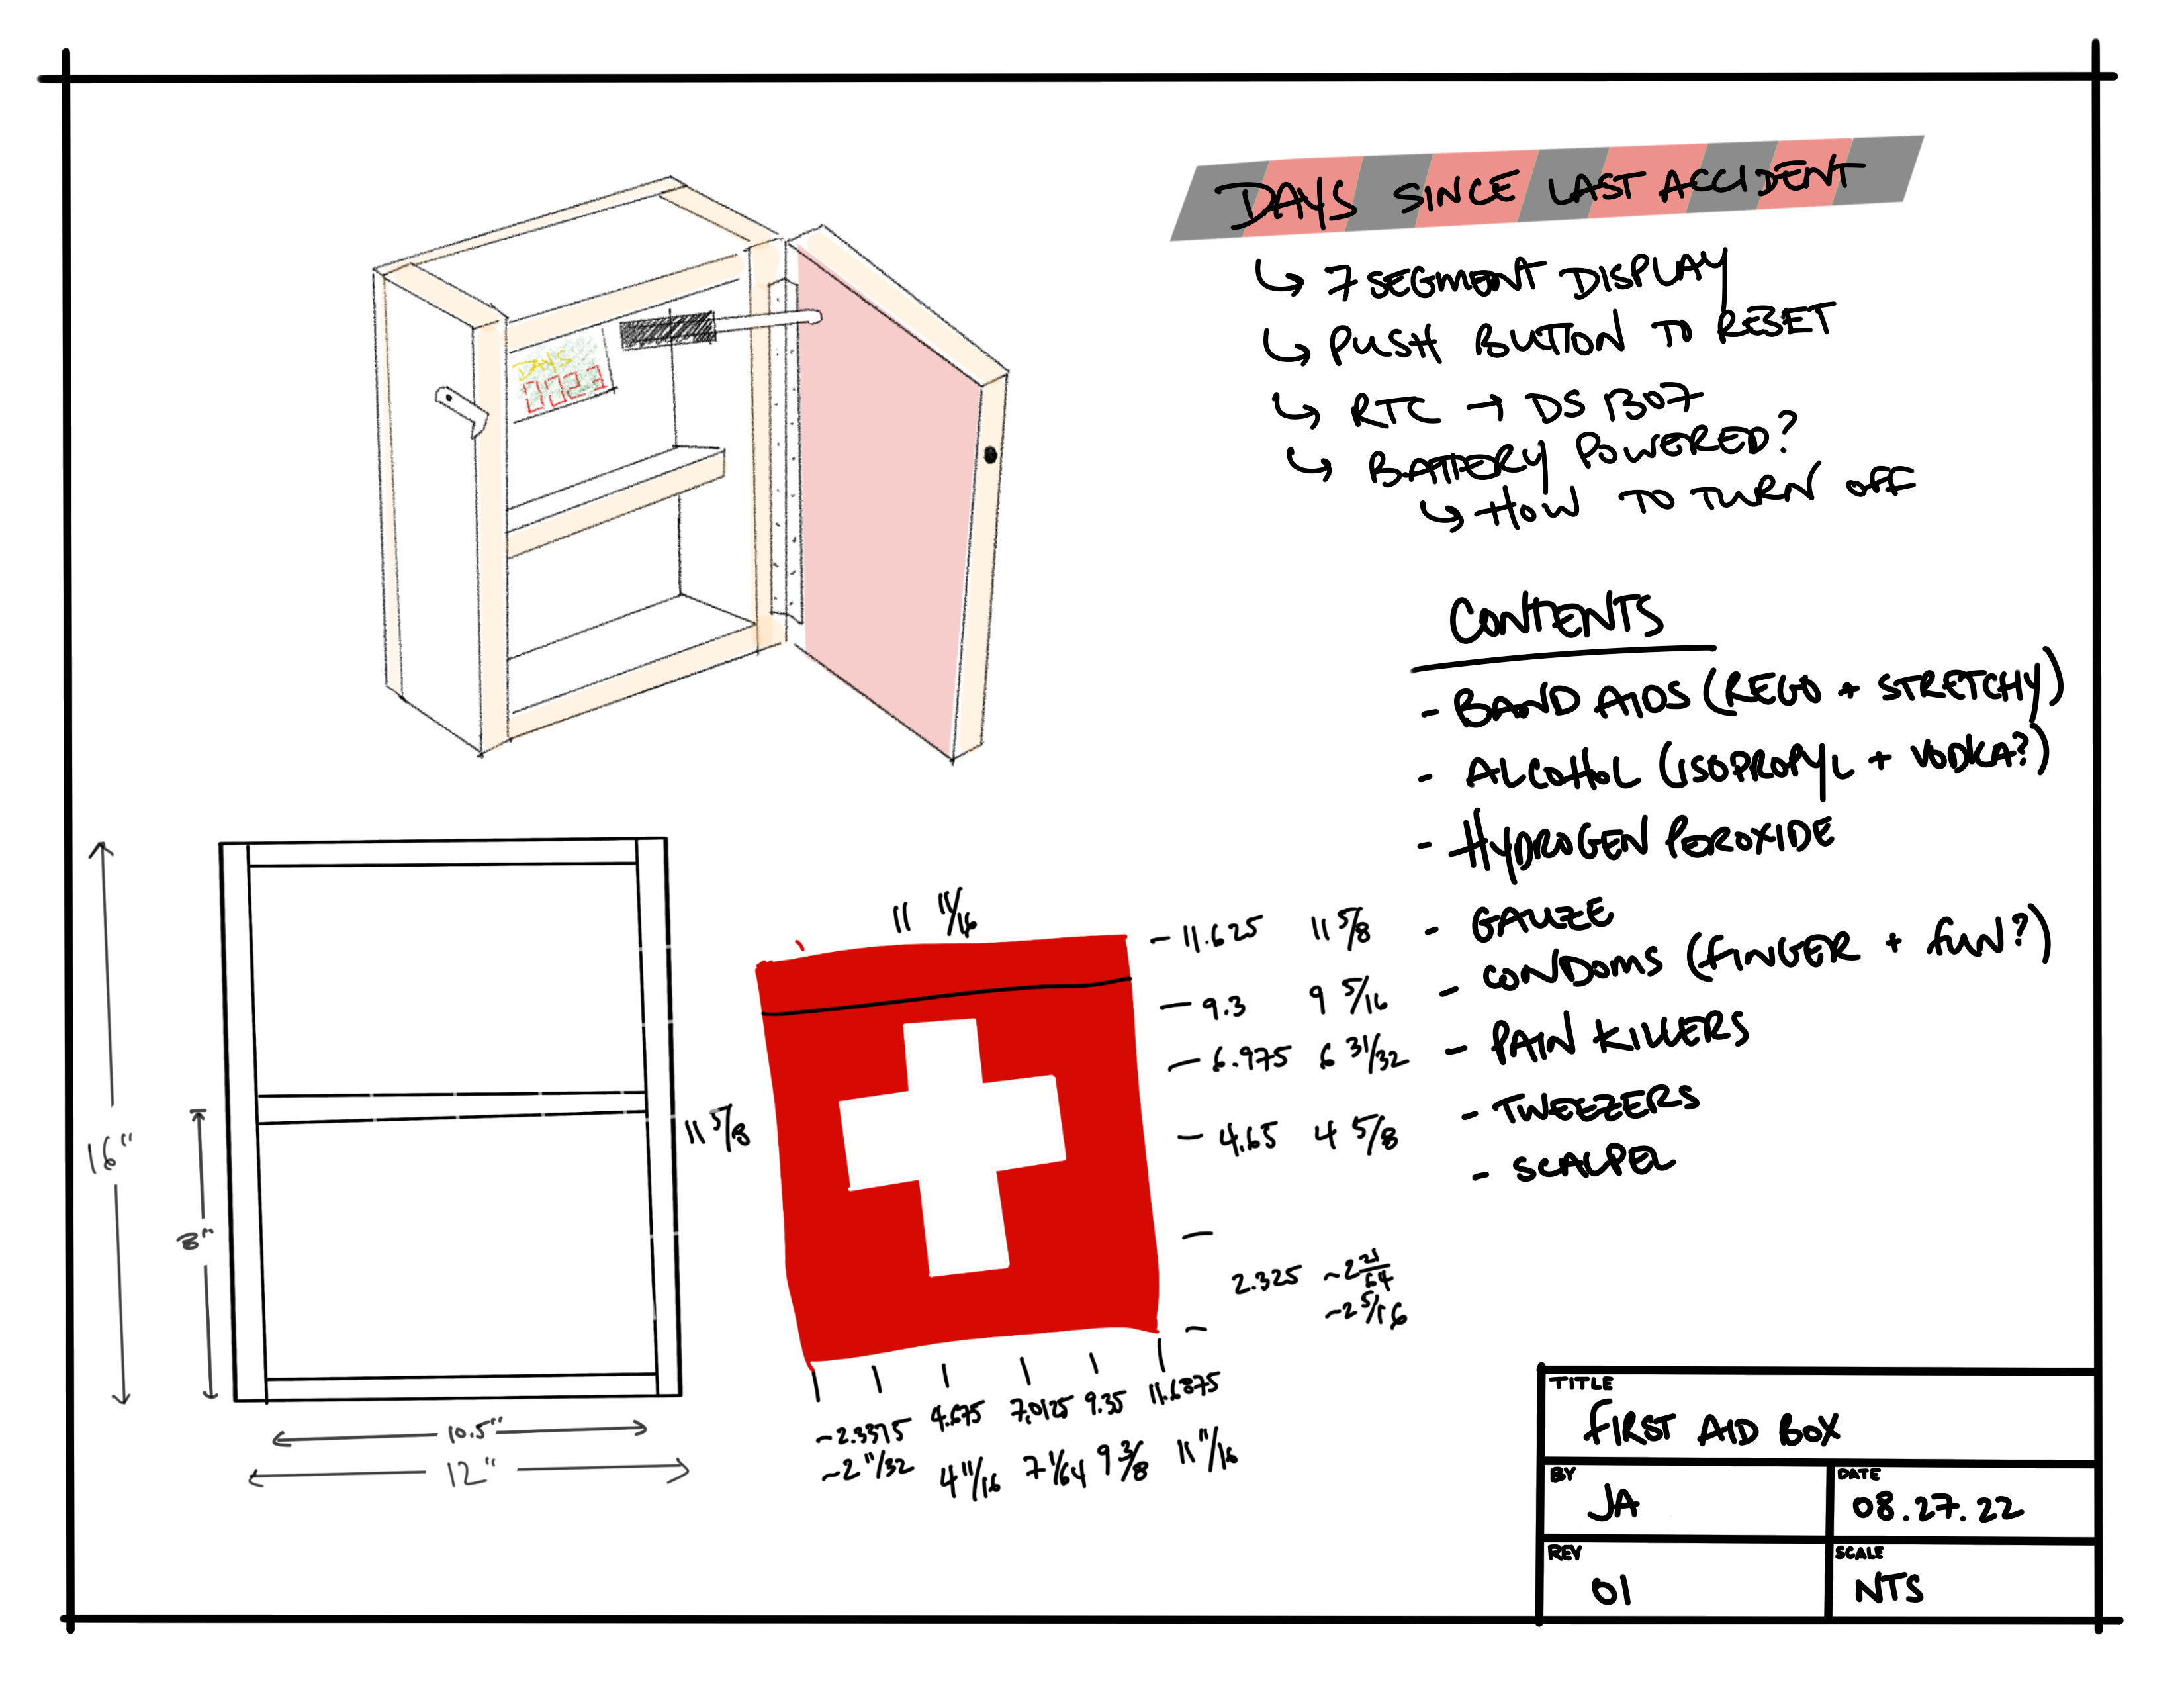 DAYS
0023
DAYS SINCE LAST ACCIDENT
↳ 7 SEGMENT DISPLAY
↳ PUSH BUTTON TO RESET
↳ RTC → DS 1307
↳ BATTERY POWERED?
↳ HOW TO TURN OFF
CONTENTS
- BAND AIDS (REGO + STRETCHY)
- ALCOHOL (ISOPROPYL + VODKA?)
- HYDROGEN PEROXIDE
- GAUZE
- CONDOMS (FINGER + FUN?)
- PAIN KILLERS
- TWEEZERS
- SCALPEL
16"
8"
10.5"
12"
11 11/16
11 5/8
- 11.625 11 5/8
- 9.3 9 5/16
- 6.975 6 31/32
- 4.65 4 5/8
2.325 ~2 21/64
~2 5/16
~2.3375 4.675 7.0125 9.35 11.6875
~2 11/32 4 11/16 7 1/64 9 3/8 11 11/16
TITLE
FIRST AID BOX
BY
JA
DATE
08.27.22
REV
01
SCALE
NTS